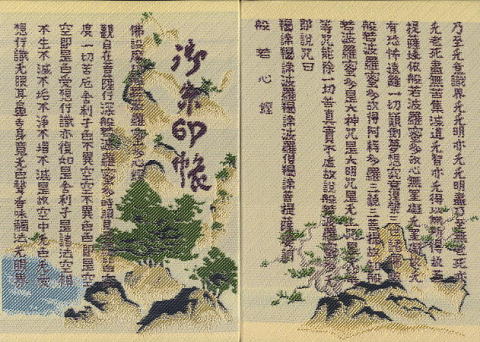 御朱印帳
佛説摩訶般若波羅蜜多心経
觀自在菩薩行深般若波羅蜜多時照見五蘊皆空
度一切苦厄舎利子色不異空空不異色色即是空
空即是色受想行識亦復如是舎利子是諸法空相
不生不滅不垢不浄不増不減是故空中无色无受
想行識无眼耳鼻舌身意无色聲香味觸法无眼界
乃至无意識界无无明亦无无明盡乃至无老死亦
无老死盡無苦集滅道无智亦无得以無所得故菩
提薩埵依般若波羅蜜多故心無罣礙无罣礙故无
有恐怖遠離一切顛倒夢想究竟涅槃三世諸佛依
般若波羅蜜多故得阿耨多羅三藐三菩提故知般
若波羅蜜多是大神咒是大明咒是无上咒是无等
等咒能除一切苦真實不虚故説般若波羅蜜多咒
即説咒曰
羯諦羯諦波羅羯諦波羅僧羯諦菩提薩婆訶
般若心經